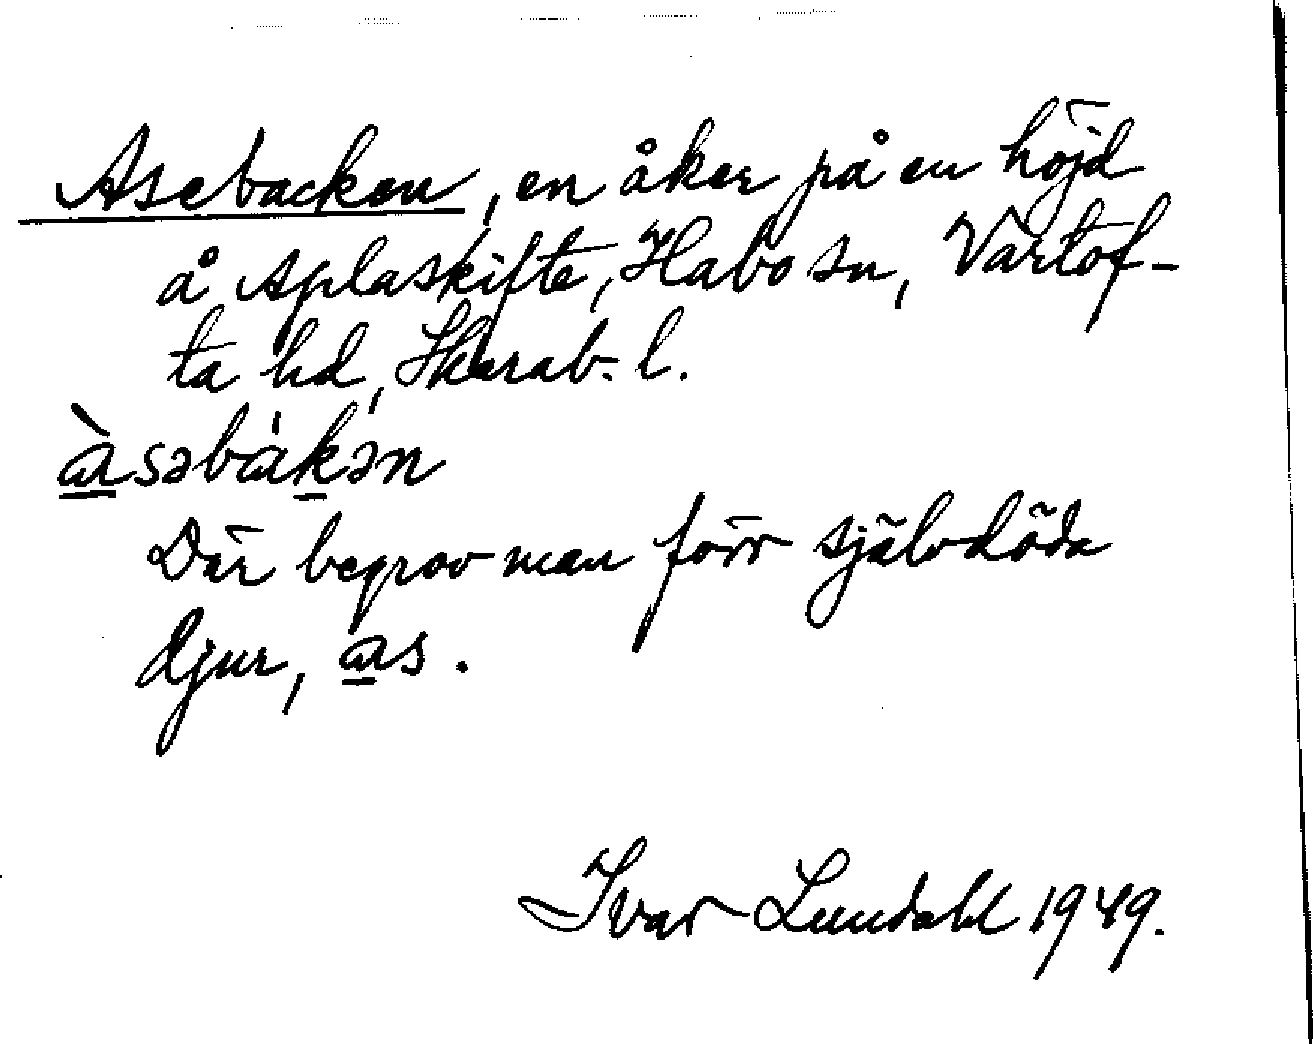 Asebacken, en åker på en höjd
å Aplaskifte, Habo sn, Vartof-
ta hd, Skarab. l.
àsəbákən
Där begrov man förr självdöda
djur, as.
Ivar Lundahl 1949.